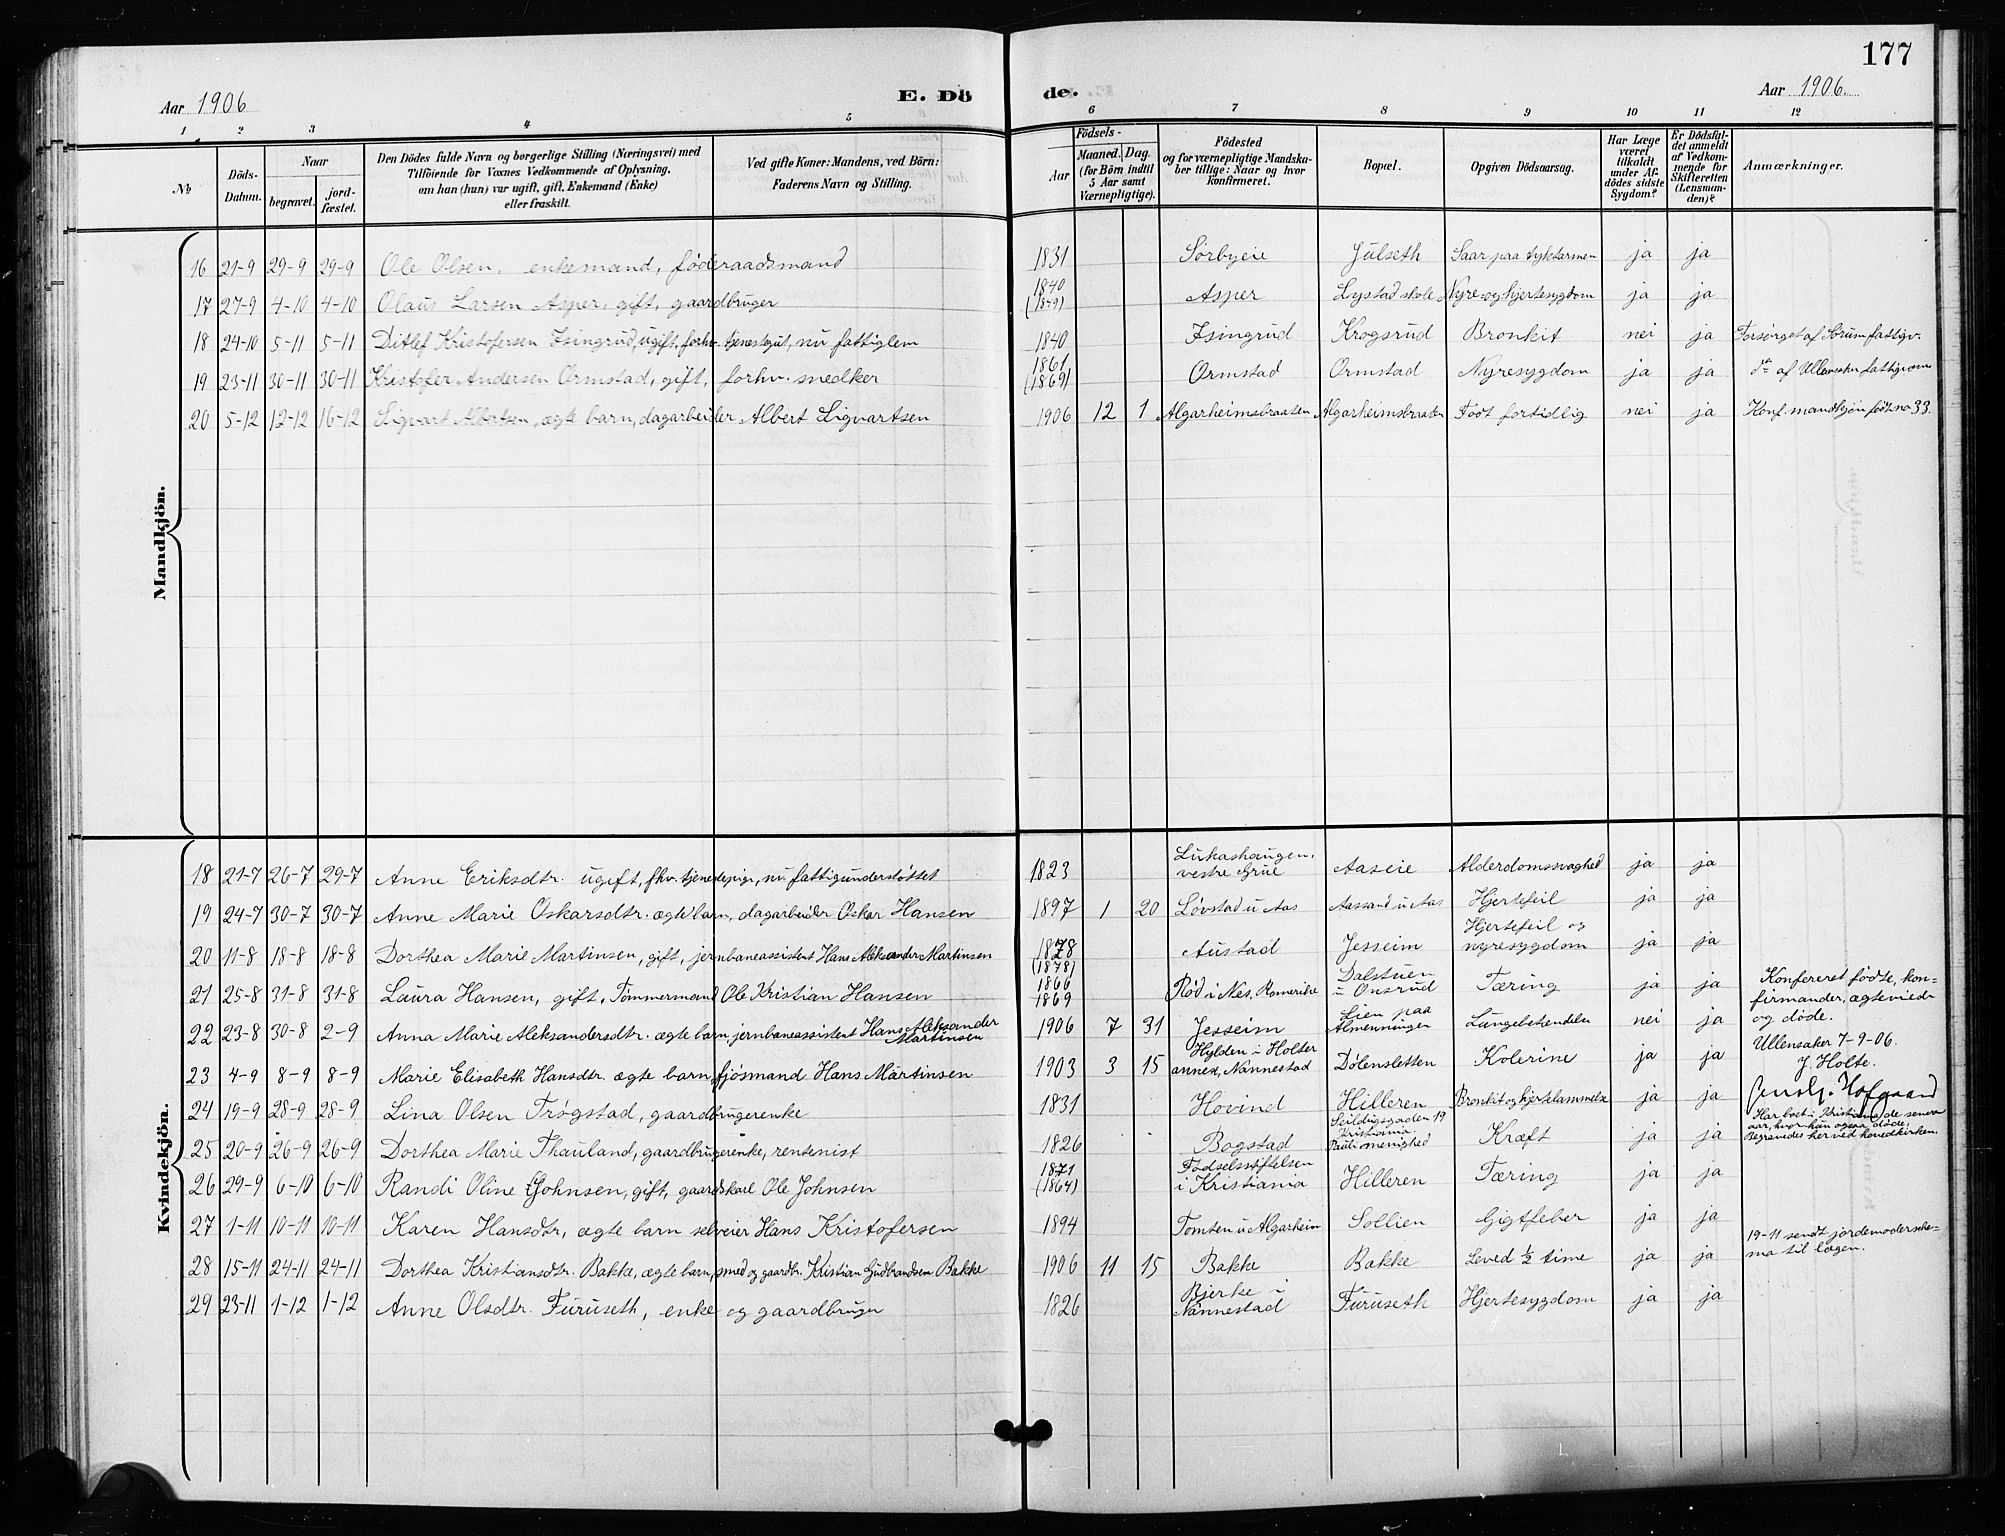 177
Aar 1906
E. Dö
de.
Aar 1906.
1 2 3 4 5 6 7 8 9 10 11 12
No
Döds-
Datum.
Naar
begravet.
jord-
fæstet.
Den Dödes fulde Navn og borgerlige Stilling (Næringsvei) med
Tilföiende for Voxnes Vedkommende af Oplysning,
om han (hun) var ugift, gift, Enkemand (Enke)
eller fraskilt.
Ved gifte Koner: Mandens, ved Börn:
Faderens Navn og Stilling.
Födsels-
Aar
Maaned. Dag.
(for Börn indtil
5 Aar samt
Værnepligtige).
Födested
og for værnepligtige Mandska-
ber tillige: Naar og hvor
konfirmeret.
Bopæl.
Opgiven Dödsaarsag.
Har Læge
været
tilkaldt
under Af-
dödes sidste
Sygdom?
Er Dödsfal-
det anmeldt
af Vedkom-
mende for
Skifteretten
(Lensman-
den)?
Anmærkninger.
Mandkjön.
16 21-9 29-9 29-9 Ole Olsen, enkemand, føderaadsmand 1831 Sørbyeie Julseth Saar paa tyktarmen ja ja
17 27-9 4-10 4-10 Olaus Larsen Asper, gift, gaardbruger 1840 (1849) Asper Lystad skole Nyre- og hjertesygdom ja ja
18 24-10 5-11 5-11 Ditlef Kristofersen Isingrud, ugift, forhv. tjenestegut, nu fattiglem 1840 Isingrud Krogsrud Bronkit nei ja Forsørget af Sørum fattigv.
19 23-11 30-11 30-11 Kristofer Andersen Ormstad, gift, forhv. snedker 1861 (1869) Ormstad Ormstad Nyresygdom ja ja af Ullensaker fattigvæsen
20 5-12 12-12 16-12 Sigvart Albertsen, ægte barn, dagarbeider Albert Sigvartsen 1906 12 1 Algarheimsbraaten Algarheimsbraaten Født fortidlig nei ja Konf. mandkjøn født no 33.
Kvindekjön.
18 21-7 26-7 29-7 Anne Eriksdtr. ugift, fhv. tjenestepige, nu fattigunderstøttet 1823 Lukashaugen, vestre Grue Aaseie Alderdomssvaghed ja ja
19 24-7 30-7 30-7 Anne Marie Oskarsdtr. ægte barn, dagarbeider Oskar Hansen 1897 1 20 Løvstad u Aas Aassand u Aas Hjertefeil ja ja
20 11-8 18-8 18-8 Dorthea Marie Martinsen, gift, jernbaneassistent Hans Aleksander Martinsen 1878 (1878) Austad Jesseim Hjertefeil og nyresygdom ja ja
21 25-8 31-8 31-8 Laura Hansen, gift, Tømmermand Ole Kristian Hansen 1866 1869 Rød i Nes, Romerike Dalstuen u Onsrud Tæring ja ja
22 23-8 30-8 2-9 Anna Marie Aleksandersdtr. ægte barn, jernbaneassistent Hans Aleksander Martinsen 1906 7 31 Jesseim Lien paa Almenningen Lungebetændelse nei ja
23 4-9 8-9 8-9 Marie Elisabeth Hansdtr. ægte barn, fjøsmand Hans Martinsen 1903 3 15 Hylden i Holter annex, Nannestad Dølensletten Kolerine ja ja
Konfereret fødte, kon-
firmander, ægteviede
og døde.
Ullensaker 7-9-06.
J. Holte.
24 19-9 28-9 28-9 Lina Olsen Trøgstad, gaardbrugerenke 1831 Hovind Hilleren Bronkit og hjertelammelse ja ja
25 20-9 26-9 26-9 Dorthea Marie Thauland, gaardbrugerenke, rentenist 1826 Bogstad Seildugsgaden 19 Kristiania. Pauli menighed Kræft ja ja Har boet i Kristiania de senere aar, hvor hun ogsaa døde. Begravedes her ved hovedkirken.
26 29-9 6-10 6-10 Randi Oline Johnsen, gift, gaardskarl Ole Johnsen 1871 (1864) Fødselsstiftelsen i Kristiania Hilleren Tæring ja ja
27 1-11 10-11 10-11 Karen Hansdtr, ægte barn selveier Hans Kristofersen 1894 Tomten u Algarheim Sollien Gigtfeber ja ja
28 15-11 24-11 24-11 Dorthea Kristiansdtr. Bakke, ægte barn, smed og gaardbr. Kristian Gudbrandsen Bakke 1906 11 15 Bakke Bakke Leved ½ time ja ja 19-11 sendt jordemoderske-
ma til lægen.
29 23-11 1-12 1-12 Anne Olsdtr. Furuseth, enke og gaardbruger 1826 Bjerke i Nannestad Furuseth Hjertesygdom ja ja